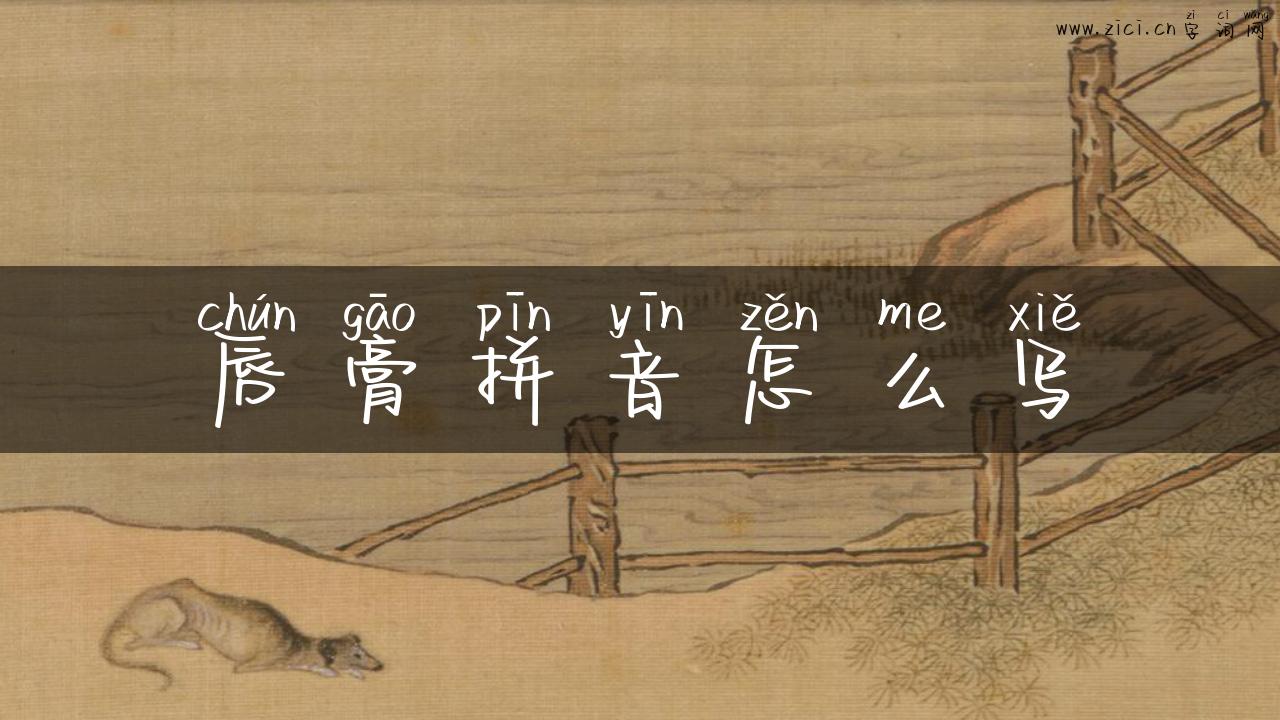 zi ci wang
www.zici.cn 字词网
chún gāo pīn yīn zěn me xiě
唇膏拼音怎么写